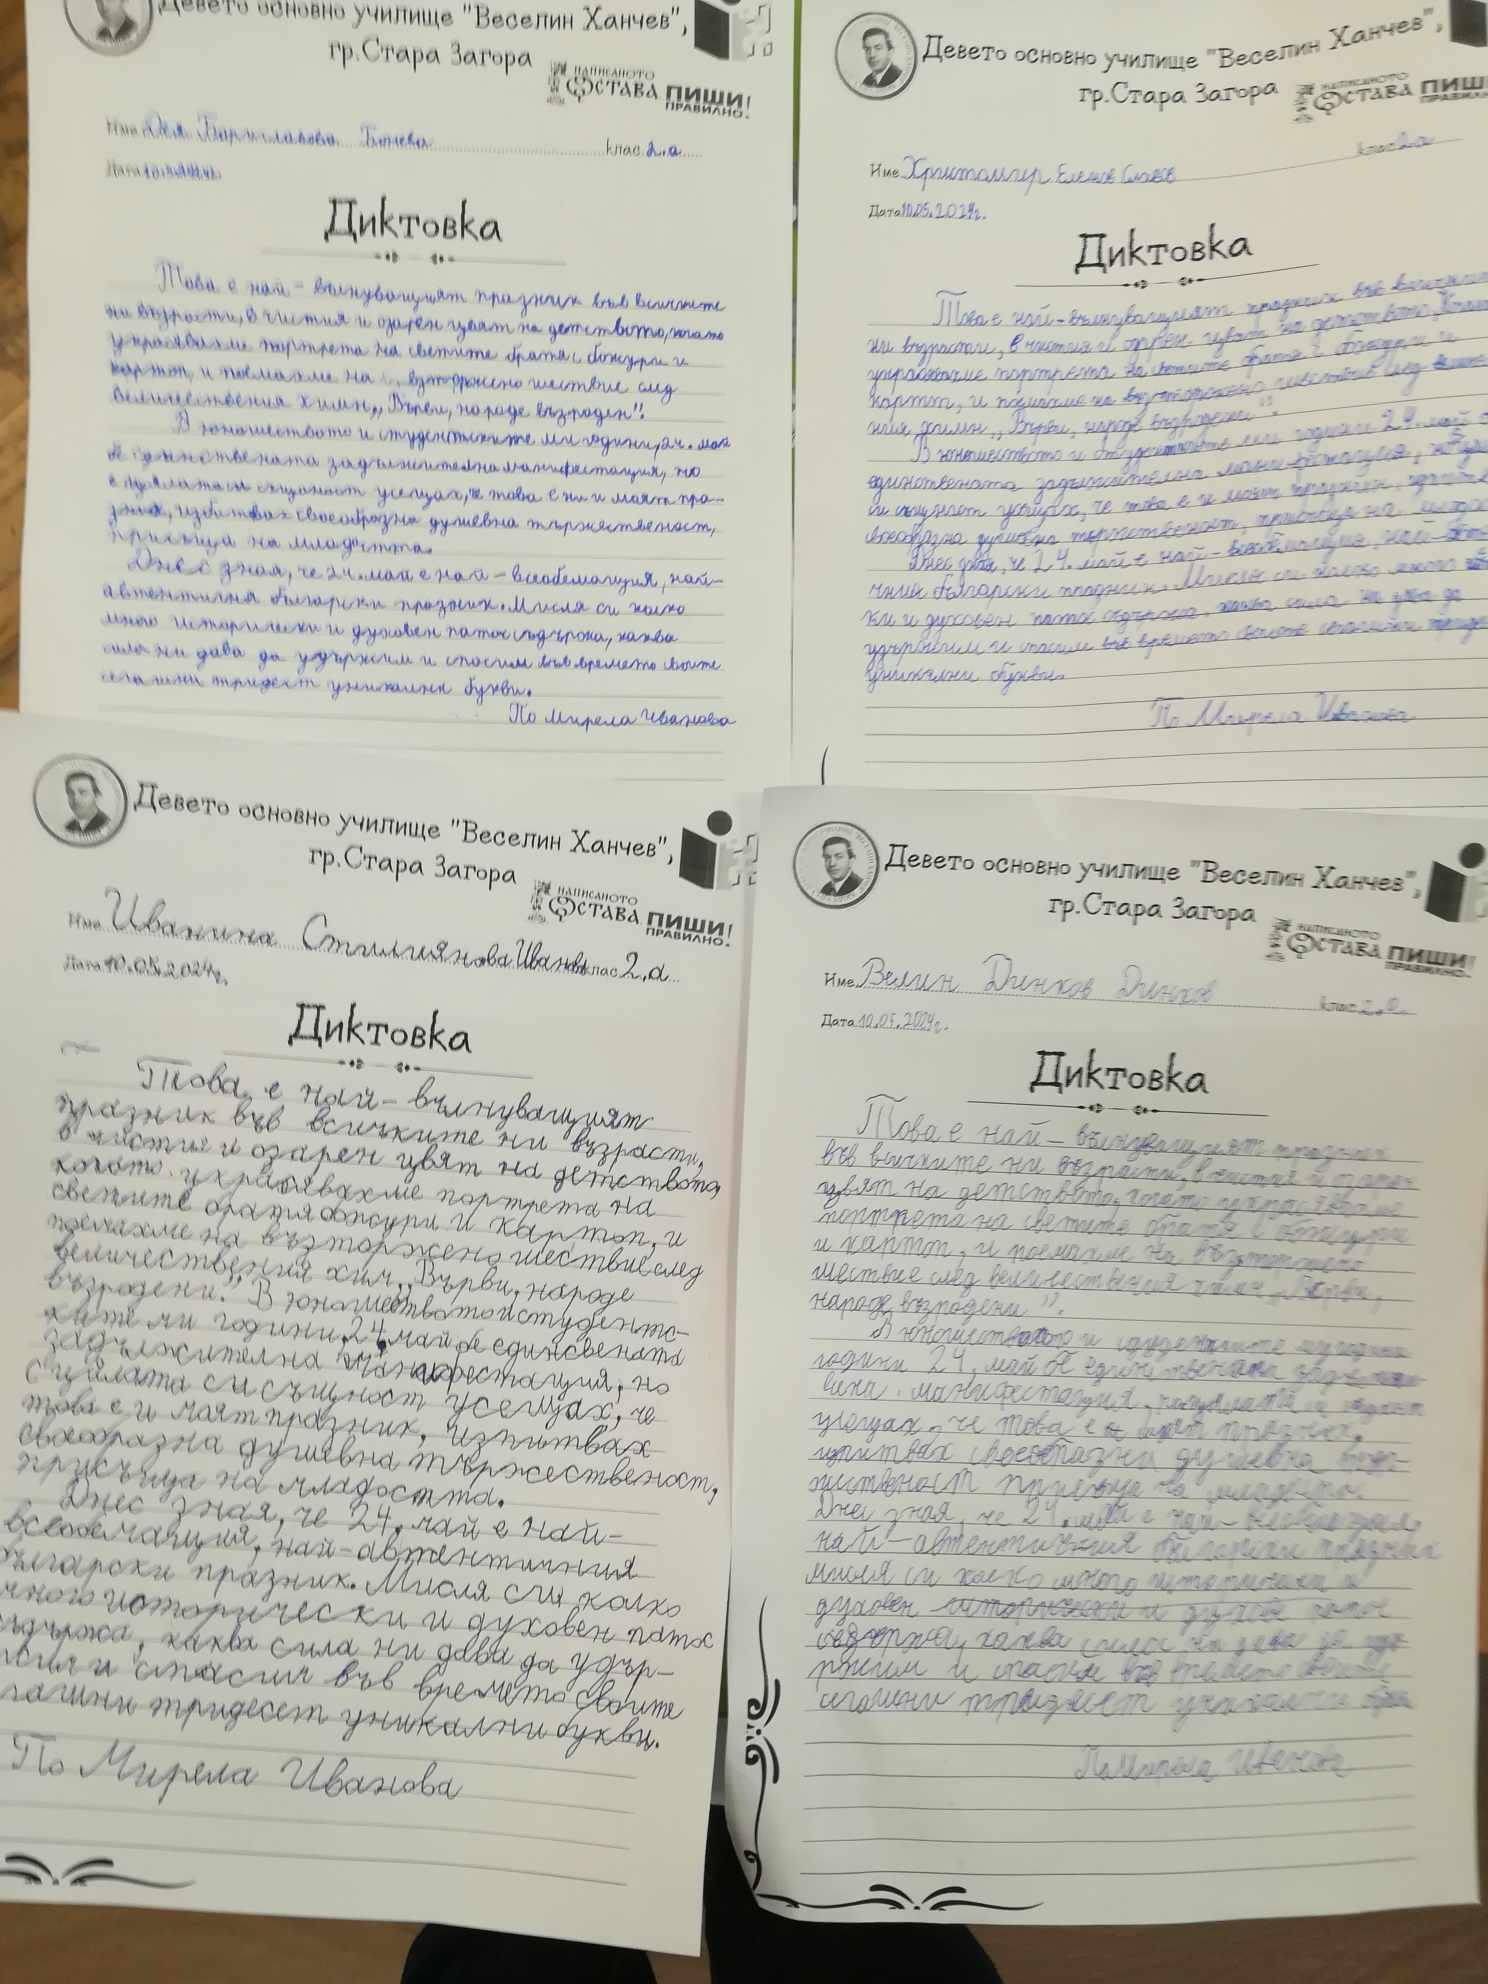 Девето основно училище "Веселин Ханчев",
гр.Стара Загора
написаното остава ПИШИ ПРАВИЛНО!
Име Бориславова Бонева клас 2.а
Дата
Диктовка
Това е най - вълнуващият празник във всичките
ни възрасти, в чистия и озарен цвят на детството, когато
украсявахме портрета на светите братя с божури и
картон, и поемахме на възторжено шествие след
величествения химн,, Върви, народе възроден".
В юношеството и студентските ми години, 24. май
бе задължителна манифестация, но
с цялата си същност усещах, че това е и моят пра-
своеобразна душевна тържественост,
присъща на младостта.
Днес зная, че 24. май е най - всеобемащия, най-
автентичния български празник. Мисля си колко
много исторически и духовен патос съдържа, каква
сила ни дава да удържим и спасим във времето своите
сегашни тридест уникални букви.
По Мирела Иванова
Девето основно училище "Веселин Ханчев",
гр.Стара Загора
написаното остава ПИШИ ПРАВИЛНО.
Име Еленов Славов клас 2а
Дата 10.05.2024г.
Диктовка
Това е най - вълнуващият празник във
ни възрасти, в чистия и озарен цвят на детството,
портрета на светите братя с божури и
картон, и поемахме на шествие след
ния химн,, Върви, народе възродени".
В юношеството и ми години 24. май
единствената задължителна
си същност усещах, че това е и моят празник,
своеобразна душевна тържественост, на
Днес зная, че 24. май е най -
български празник. Мисля си колко много
ки и духовен патос съдържа, каква сила ни дава да
удържим и спасим във времето своите сегашни
уникални букви.
По Мирела Иванова
Девето основно училище "Веселин Ханчев",
гр.Стара Загора
написаното остава ПИШИ ПРАВИЛНО!
Име Иванина Стилиянова Иванова клас 2.а
Дата 10.05.2024г.
Диктовка
Това е най - вълнуващият
празник във всичките ни възрасти,
в чистия и озарен цвят на детството,
когато украсявахме портрета на
светите братя божури и картон, и
поемахме на възторжено шествие след
величествения химн,, Върви, народе
възродени." В юношеството и студентс-
ките ми години 24. май бе единсвената
задължителна манифестация, но
с цялата си същност усещах, че
това е и моят празник, изпитвах
своеобразна душевна тържественост,
присъща на младостта.
Днес зная, че 24. май е най-
всеобемащия, най-автентичния
български празник. Мисля си колко
много исторически и духовен патос
съдържа, каква сила ни дава да удър-
жим и спасим във времето своите
сегашни тридесет уникални букви.
По Мирела Иванова
Девето основно училище "Веселин Ханчев",
гр.Стара Загора
написаното остава ПИШИ ПРАВИЛНО!
Име Велин Динков Динков клас 2.а
Дата 10.05.2024г.
Диктовка
Това е най - вълнуващият празник
във всичките ни възрасти, в чистия и озарен
цвят на детството, когато украсявахме
портрета на светите братя с божури
и картон, и поемахме на
шествие след величествения химн,, Върви,
народе, възродени".
В юношеството и ми години
години 24. май бе единствената
манифестация,
усещах, че това е и моят празник,
изпитвах своеобразна душевна
жественост присъща на
Днес зная, че 24. май е най -
най - автентичния български празник
мисля си колко много исторически и
духовен исторически и патос
съдържа, каква сила ни дава да удъ-
ржим и спасим във времето своите
сегашни уникални букви
По Мирела Иванова